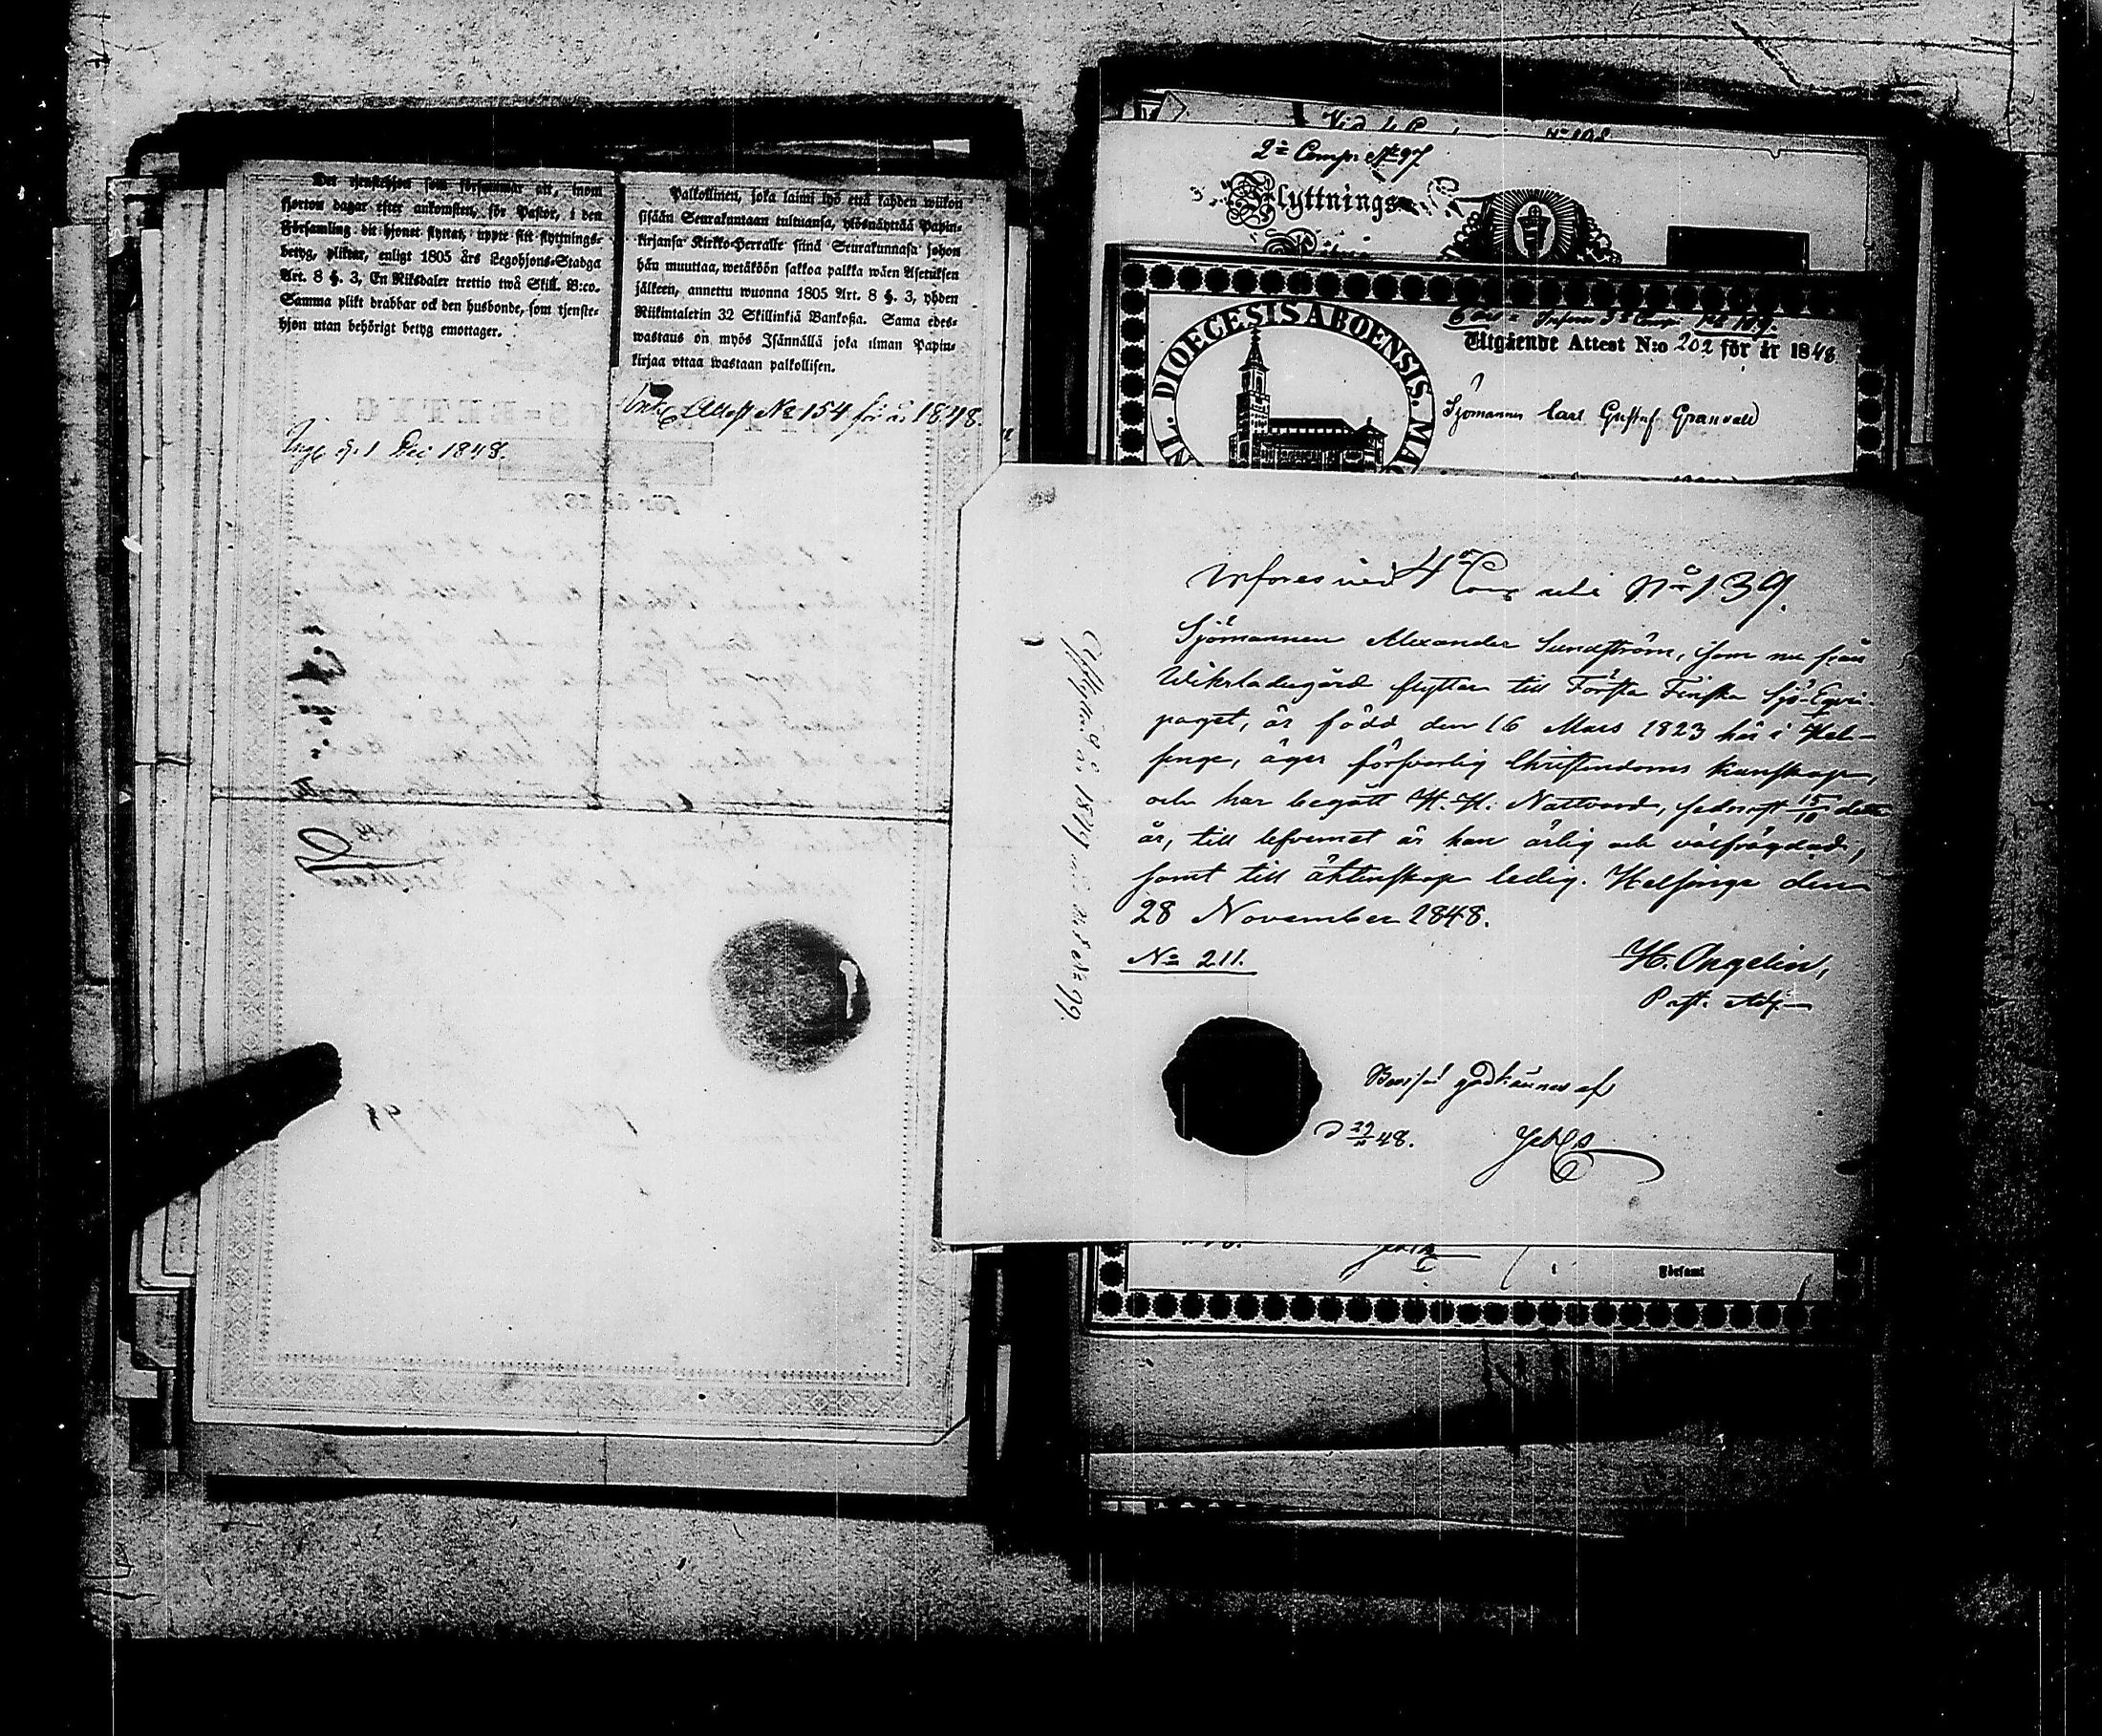 Det tjenstehjon som försummar att, inom
fjorton dagar efter ankomsten, för Pastor, i den
Församling dit hjonet flyttat, uppte sitt flyttnings-
betyg, pliktar, enligt 1805 års Legohjons-Stadga
Art. 8 §. 3, En Riksdaler trettio twå Skill. B:co.
Samma plikt drabbar ock den husbonde, som tjenste-
hjon utan behörigt betyg emottager.
Palkollinen, joka laimi lyö että kahden wiikon
sisään Seurakuntaan tultuansa, ylösnäyttää Papin-
kirjansa Kirkko-Herralle siinä Seurakunnasa johon
hän muuttaa, wetäköön sakkoa palkka wäen Asetuksen
jälkeen, annettu wuonna 1805 Art. 8 §. 3, yhden
Riikintalerin 32 Skillinkiä Bankoßa. Sama edes-
wastaus on myös Isännällä joka ilman Papin-
kirjaa ottaa wastaan palkollisen.
Attest No 154 för år 1848.
d. 1 Dec 1848.
2a Comp. No 97
Flyttnings
DIOECESIS ABOENSIS.
Utgående Attest N:o 202 för år 1848
Sjömannen Carl Gustaf Granvall
Införes vid 4de Comp. No 139.
Sjömannen Alexander Sundström, som nu från
Wiksladugård flyttar till Första Finska Sjö-Eqvi-
paget, är född den 16 Mars 1823 här i Hel-
singe, äger försvarlig Christendoms kunskap,
och har begått H. H. Nattvard, sednast 15/10 detta
år, till lefvernet är han ärlig och välfrägdad,
samt till äktenskap ledig. Helsinge den
28 November 1848.
No 211.
H. Ongelin,
Past. Adj.
godkännes af
d 29/11 48.
Församl